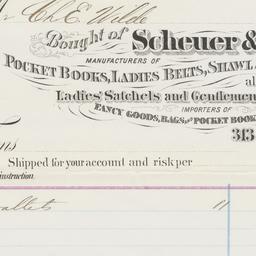 Chs E. Wilde
Bought of Scheuer &
MANUFACTURERS OF
POCKET BOOKS, LADIES BELTS, SHAWL
al
Ladies' Satchels and Gentlemen
IMPORTERS OF
FANCY GOODS, BAGS, AND POCKET BOOK
313
Shipped for your account and risk per
instruction.
wallets 11